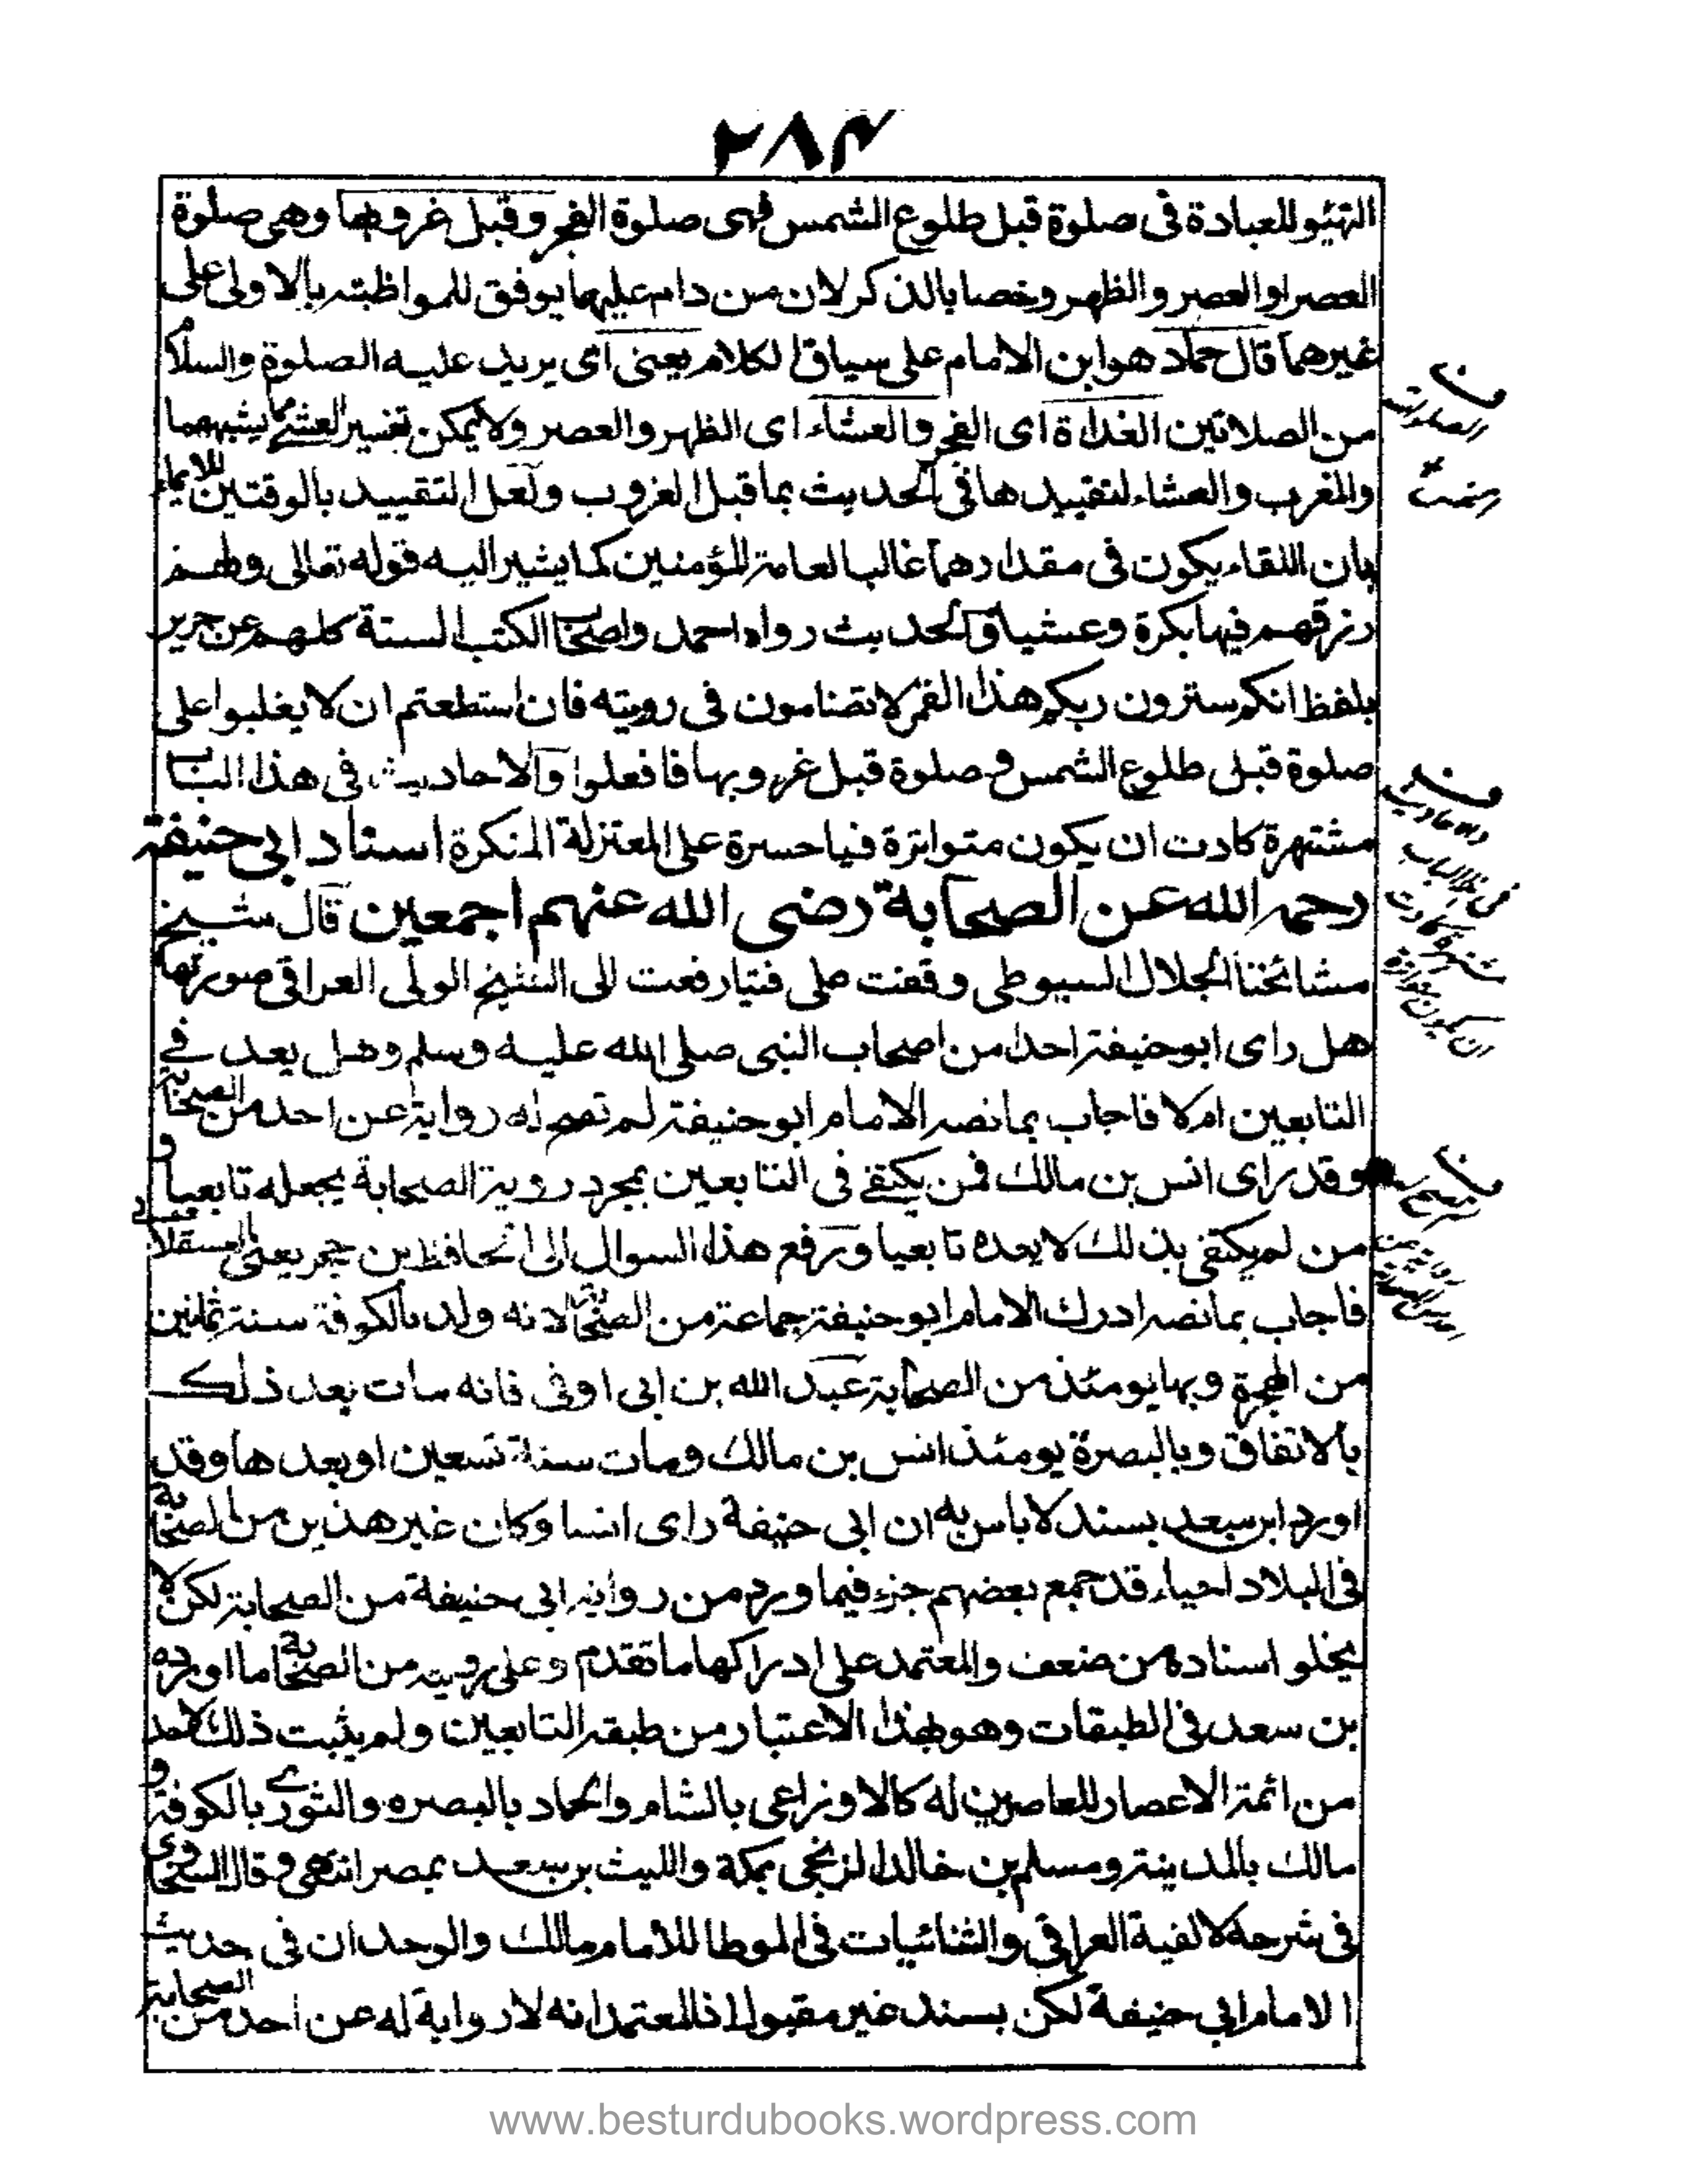 ٢٨٤
التهيؤ للعبادة فى صلوة قبل طلوع الشمس فهى صلوة الفجر وقبل غروبها وهى صلوة
العصر او العصر والظهر وخصا بالذكر لان من دام عليهما يوفق للمواظبته بالاولى على
غيرهما قال حماد هو ابن الامام على سياق الكلام يعنى اى يريد عليه الصلوة والسلام
من الصلاتين الغداة اى الفجر والعشاء اى الظهر والعصر ولا يمكن تفسير العشى بما يشبههما
والمغرب والعشاء لتقييدها فى الحديث بما قبل الغروب ولعل التقييد بالوقتين للايماء
بان اللقاء يكون فى مقدارهما غالبا لعامة المؤمنين كما يشير اليه قوله تعالى ولهم
رزقهم فيها بكرة وعشيا والحديث رواه احمد واصحاب الكتب الستة كلهم عن جرير
بلفظ انكم سترون ربكم هذا القمر لا تضامون فى رويته فان استطعتم ان لا يغلبوا على
صلوة قبل طلوع الشمس و صلوة قبل غروبها فافعلوا والاحاديث فى هذا الباب
مشتهرة كادت ان يكون متواترة فياحسرة على المعتزلة المنكرة اسناد ابى حنيفة
رحمه الله عن الصحابة رضى الله عنهم اجمعين قال شيخ
مشائخنا الجلال السيوطى وقفت على فتيا رفعت الى الشيخ الولى العراقى صورتها
هل راى ابو حنيفة احدا من اصحاب النبى صلى الله عليه وسلم وهل يعد فى
التابعين ام لا فاجاب بما نصه الامام ابو حنيفة لم تصح له رواية عن احد من الصحابة
وقد راى انس بن مالك فمن يكتفى فى التابعين بمجرد روية الصحابة يجعله تابعيا و
من لم يكتفى بذلك لا يعده تابعيا ورفع هذا السوال الى الحافظ بن حجر يعنى العسقلانى
فاجاب بما نصه ادرك الامام ابو حنيفة جماعة من الصحابة لانه ولد بالكوفة سنة ثمانين
من الهجرة وبها يومئذ من الصحابة عبد الله بن ابى اوفى فانه مات بعد ذلك
بالاتفاق وبالبصرة يومئذ انس بن مالك ومات سنة تسعين او بعدها وقد
اورد ابن سعد بسند لا باس به ان ابى حنيفة راى انسا وكان غير هذين من الصحابة
فى البلاد احياء قد جمع بعضهم جزء فيما ورد من رواية ابى حنيفة من الصحابة لكن لا
يخلو اسناده من ضعف والمعتمد على ادراكها ما تقدم وعلى رويته من الصحابة ما اورده
بن سعد فى الطبقات وهو بهذا الاعتبار من طبقة التابعين ولم يثبت ذلك لاحد
من ائمة الاعصار المعاصرين له كالاوزاعى بالشام والحماد بالبصره والثورى بالكوفة و
مالك بالمدينة ومسلم بن خالد الزنجى بمكة والليث بن سعد بمصر انتهى وقال السخاوى
فى شرحه لالفية العراقى والثنائيات فى الموطا للامام مالك والوحدان فى حديث
الامام ابى حنيفة لكن بسند غير مقبول اذ المعتمد انه لا رواية له عن احد من الصحابة
www.besturdubooks.wordpress.com